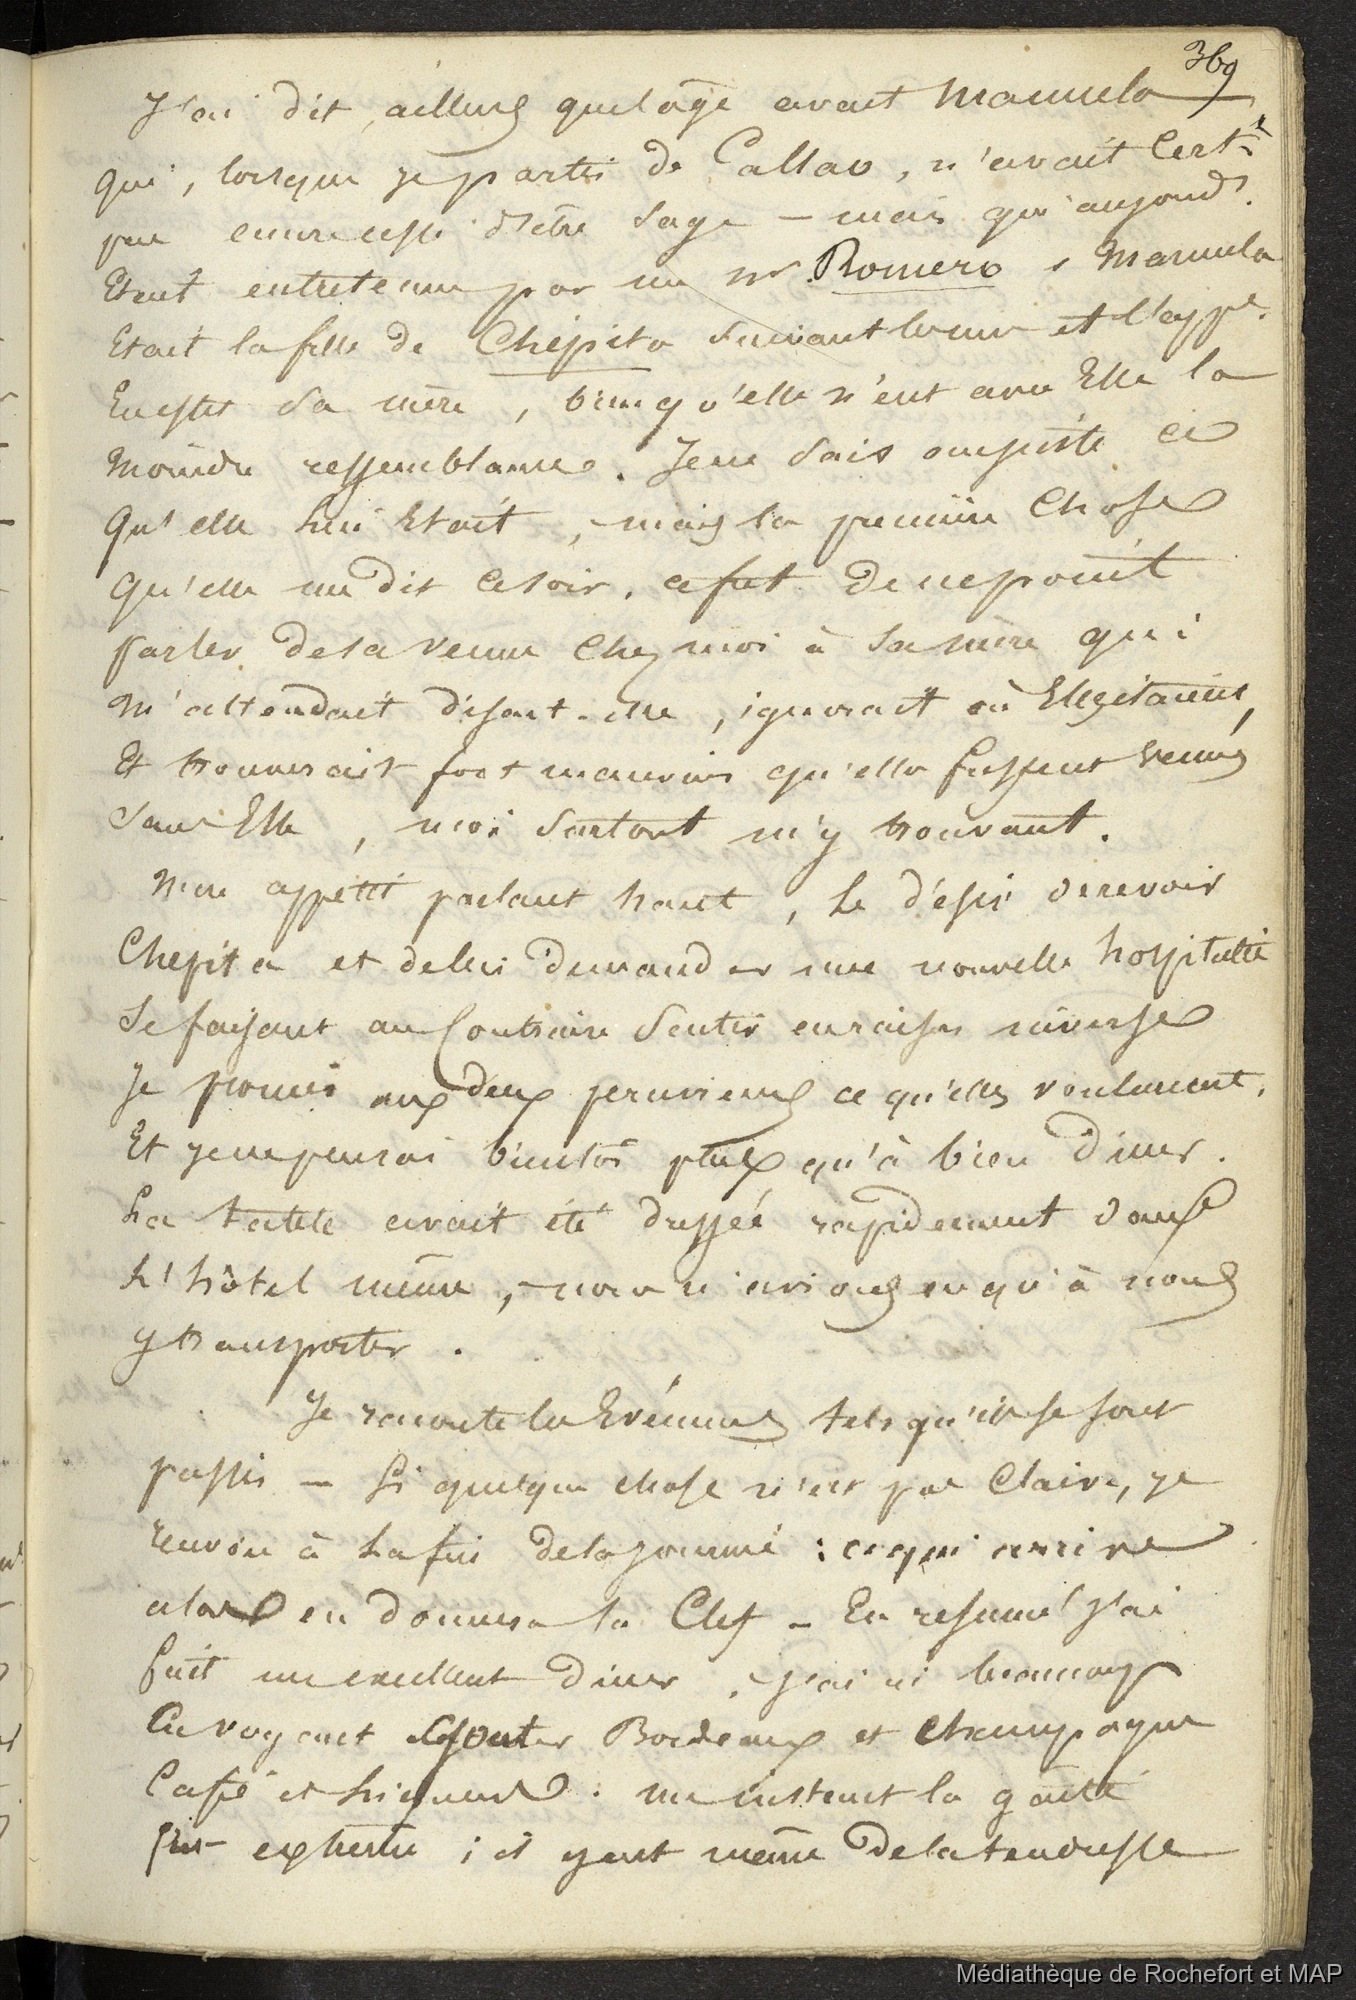 369
J'ai dit ailleurs quel âge avait Manuela
qui, lorsque je partis de Callao, n'avait Cert.t
pas encore cessé d'être sage – mais qui aujourd'.
Etait entretenue par un Mr Romero, Manuela
Etait la fille de Chépita suivant les uns et l'app.t
En effet sa mère, bien qu'elle n'eut avec Elle la
moindre ressemblance. Je ne sais au juste ce
Qu'elle lui Etait, mais la premiere Chose
qu'elle me dit ce soir, ce fut de ne point
parler de sa venue chez moi à sa mère qui
m'attendait disait-elle, ignorait où Elles étaient,
Et trouverait fort mauvais qu'elles fussent venues
sans Elle, moi surtout m'y trouvant.
Mon appétit parlant haut, le désir de revoir
Chepita et de lui demander une nouvelle hospitalité
se faisant au Contraire sentir en raison inverse
Je promis aux deux peruviennes ce qu'elles voulurent,
Et je ne pensai bientôt plus qu'à bien diner.
La table avait été dressée rapidement dans
L'hôtel même, nous n'avions eu qu'à nous
y transporter.
Je raconte les Evénemens tels qu'ils se sont
passés – Si quelque chose n'est pas Claire, je
renvoie à la fin de la journée : ce qui arrive
alors en donnera la Clef – En resumé j'ai
fait un excellent diner, j'ai ri beaucoup
En voyant Bordeaux et Champagne
Café et Liqueurs. un instant la gaité
fut extreme ; il y eut même de la tendresse
Médiathèque de Rochefort et MAP